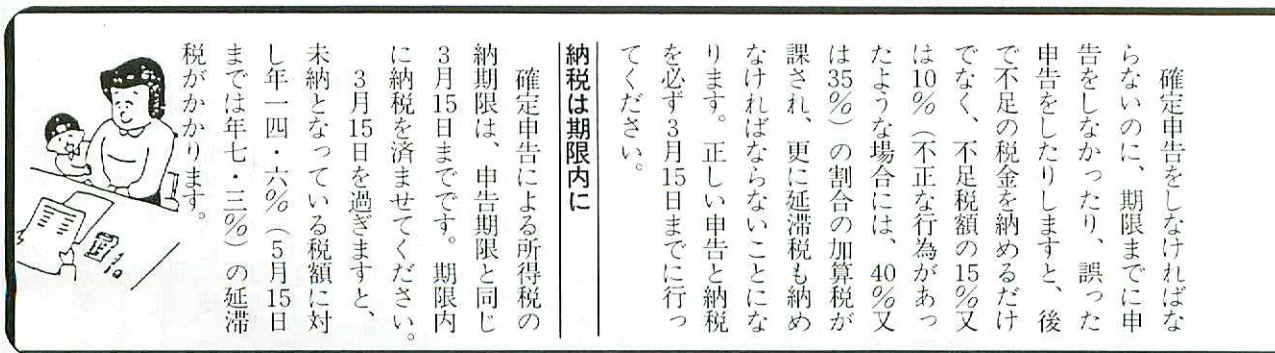 確定申告をしなければな
らないのに、期限までに申
告をしなかったり、誤った
申告をしたりしますと、後
で不足の税金を納めるだけ
でなく、不足税額の15%又
は10%（不正な行為があっ
たような場合には、40%又
は35%）の割合の加算税が
課され、更に延滞税も納め
なければならないことにな
ります。正しい申告と納税
を必ず3月15日までに行っ
てください。
納税は期限内に
確定申告による所得税の
納期限は、申告期限と同じ
3月15日までです。期限内
に納税を済ませてください。
3月15日を過ぎますと、
未納となっている税額に対
し年一四・六%（5月15日
までは年七・三%）の延滞
税がかかります。